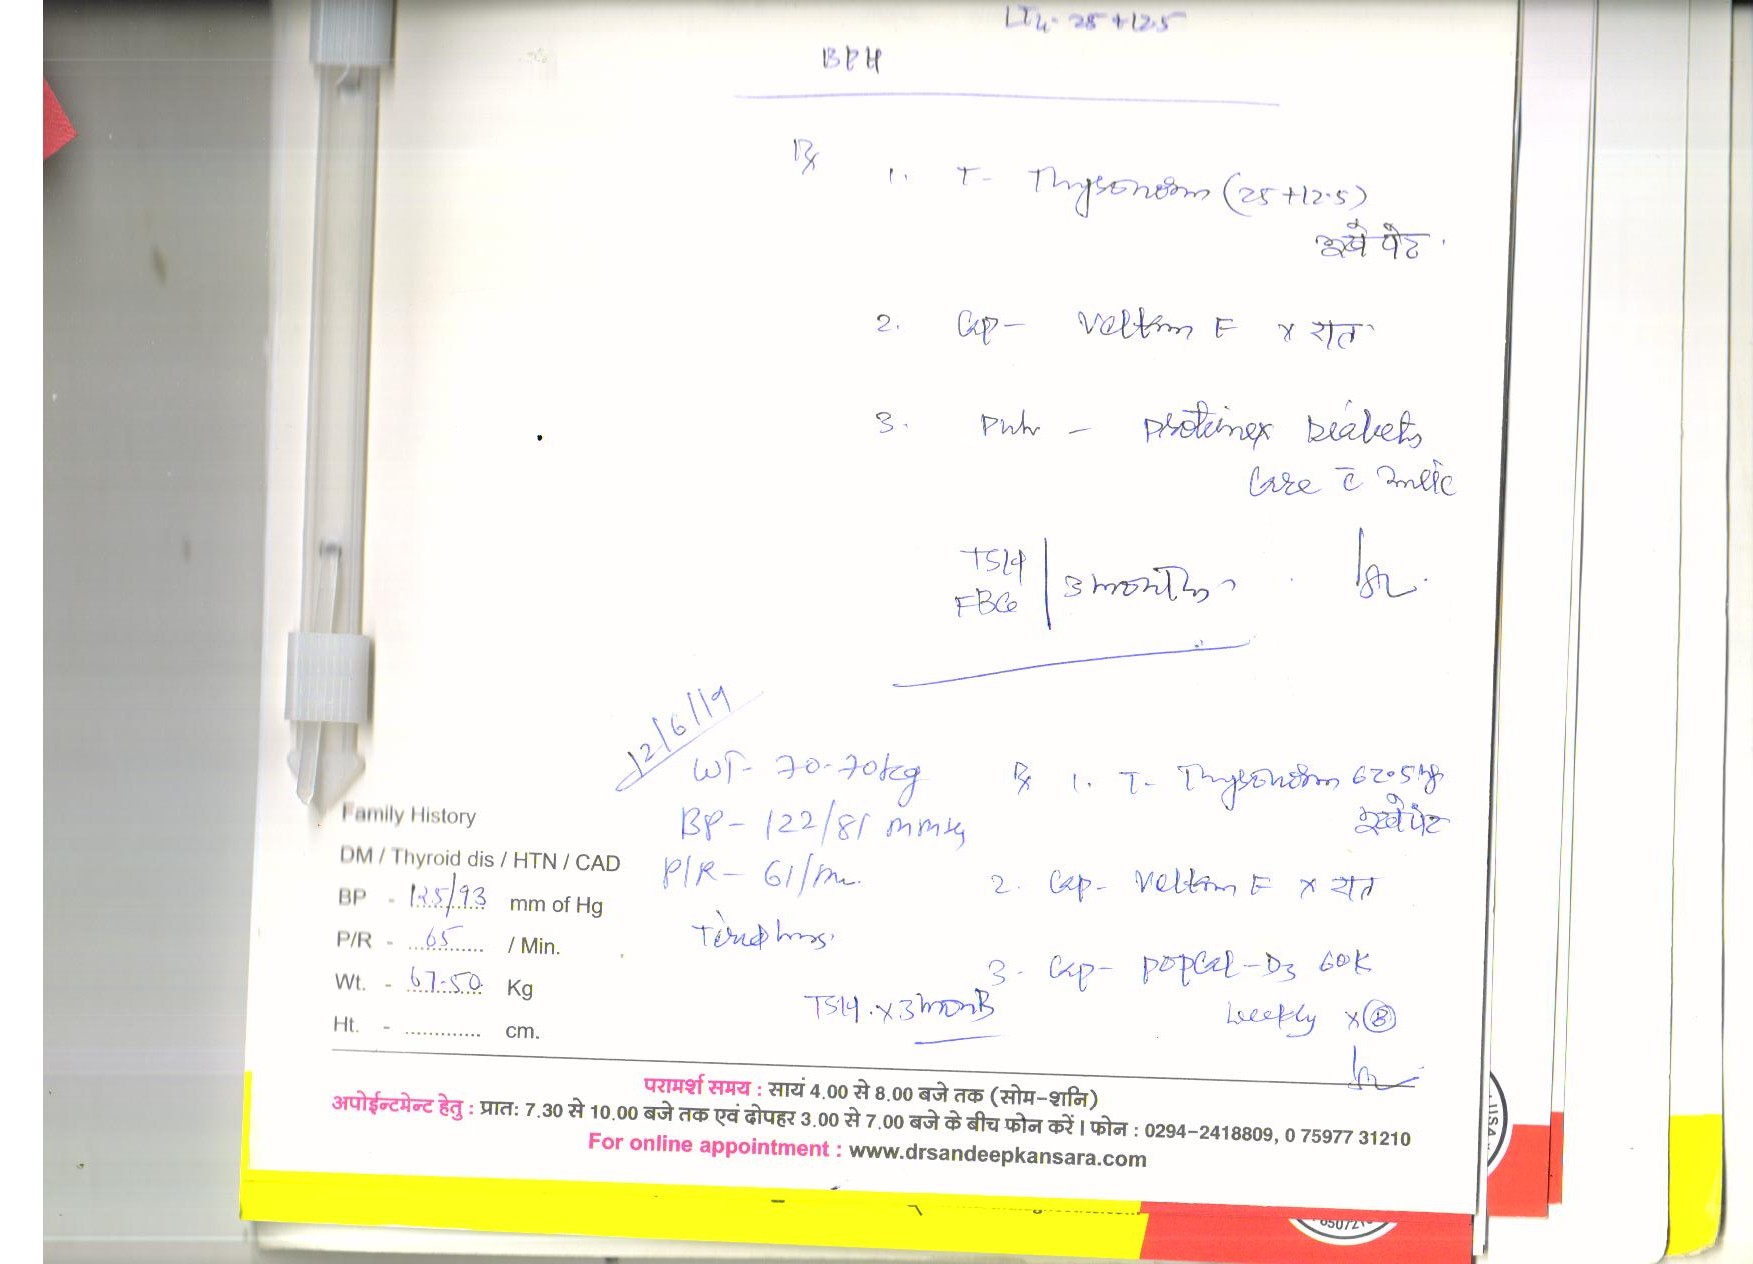 LT4- 25+12.5
BPH
Rx
1. T- Thyronorm (25+12.5)
भूखे पेट
2. Cap- Veltam F x रात
3. Pwdr - Proteinex Diabetes
Care c̄ milk
TSH
FBG | 3 months
12/6/19
WT- 70.70kg
BP- 122/81 mmHg
P/R- 61/m
Tiredness.
TSH. x 3 months
Rx 1. T- Thyronorm 62.5 µg
भूखे पेट
2. Cap- Veltam F x रात
3. Cap- Popcal-D3 60K
weekly x 8
Family History
DM / Thyroid dis / HTN / CAD
BP - 125/93 mm of Hg
P/R - 65 / Min.
Wt. - 67.50 Kg
Ht. - ............. cm.
परामर्श समय : सायं 4.00 से 8.00 बजे तक (सोम-शनि)
अपोईन्टमेन्ट हेतु : प्रातः 7.30 से 10.00 बजे तक एवं दोपहर 3.00 से 7.00 बजे के बीच फोन करें। फोन : 0294-2418809, 0 75977 31210
For online appointment : www.drsandeepkansara.com